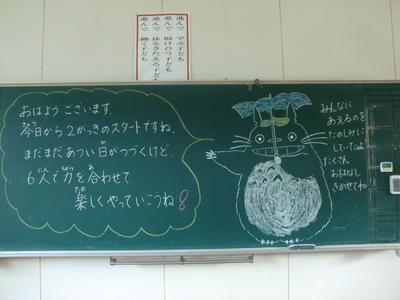 進んで 学ぶ子ども
進んで 助け合う子ども
進んで 体をきたえる子ども
進んで 働く子ども
おはようございます。
今日から２がっきのスタートですね。
まだまだあつい日がつづくけど、
６人で力を合わせて、
楽しくやっていこうね！
みんなに
あえるのを
たのしみに
していたよ。
たくさん、
おはなし
きかせてね